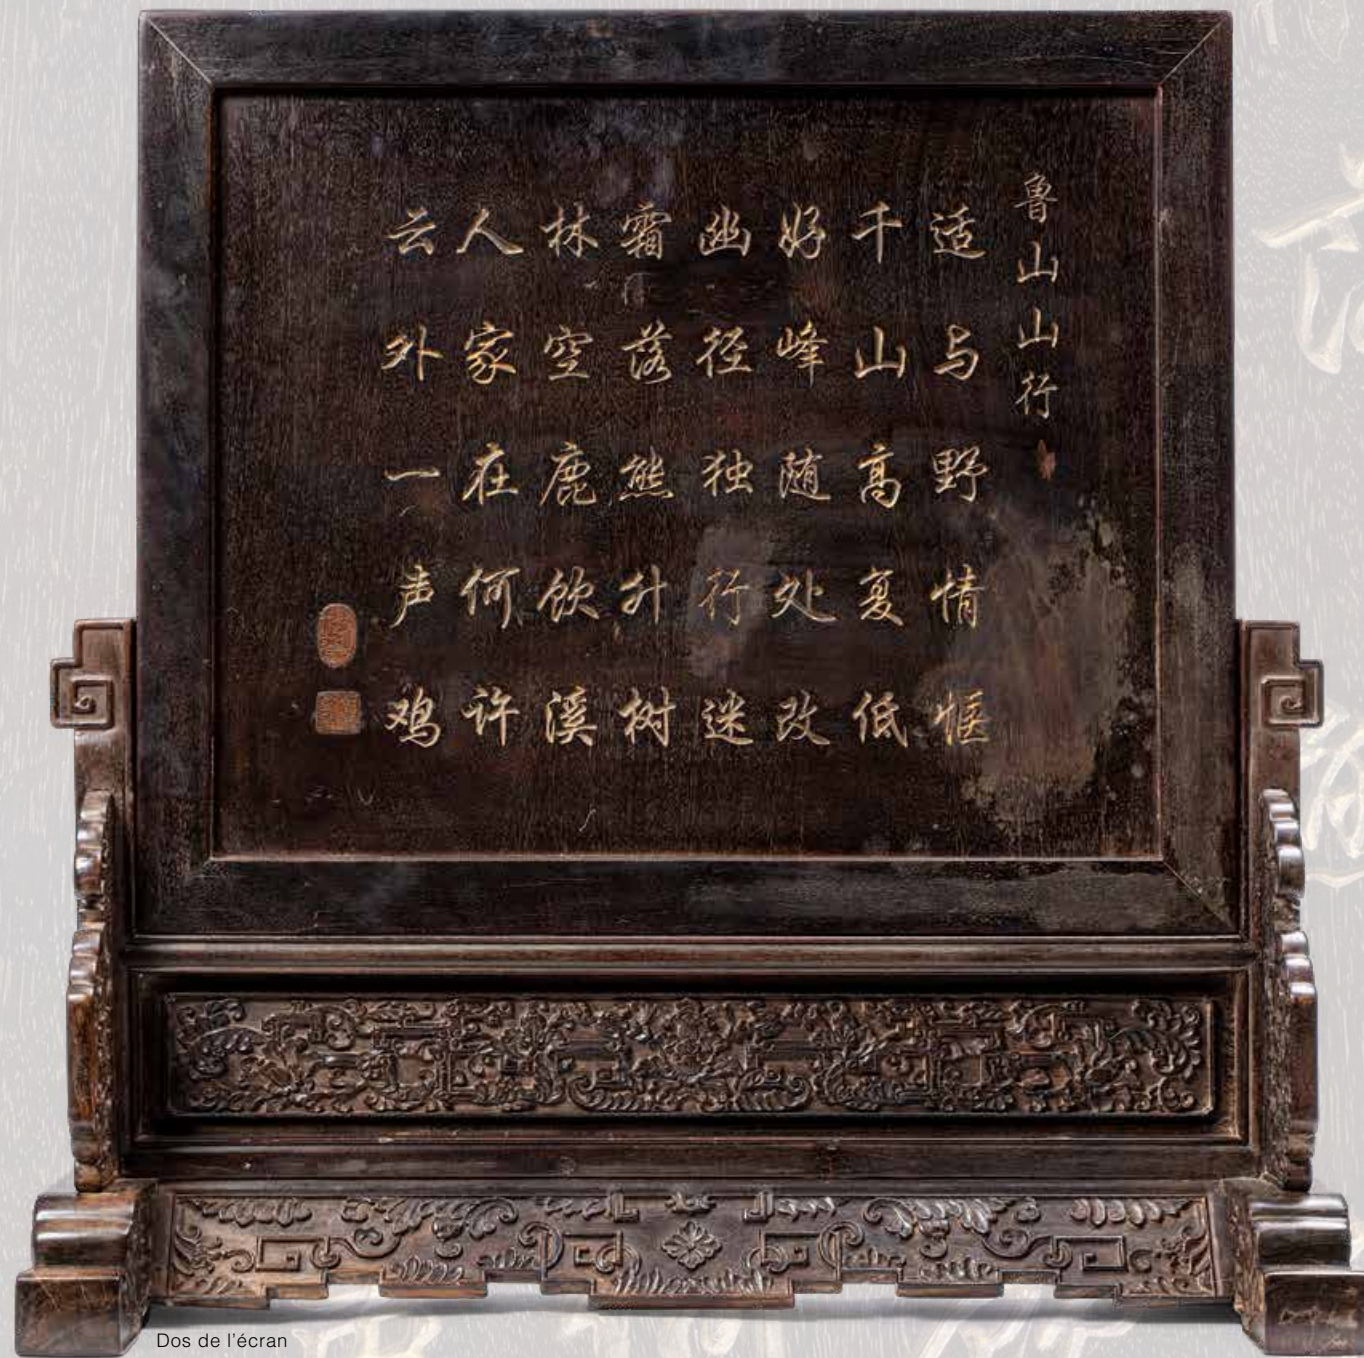 魯山山行
适与野情惬
千山高复低
好峰随处改
幽径独行迷
霜落熊升树
林空鹿饮溪
人家在何许
云外一声鸡
Dos de l'écran